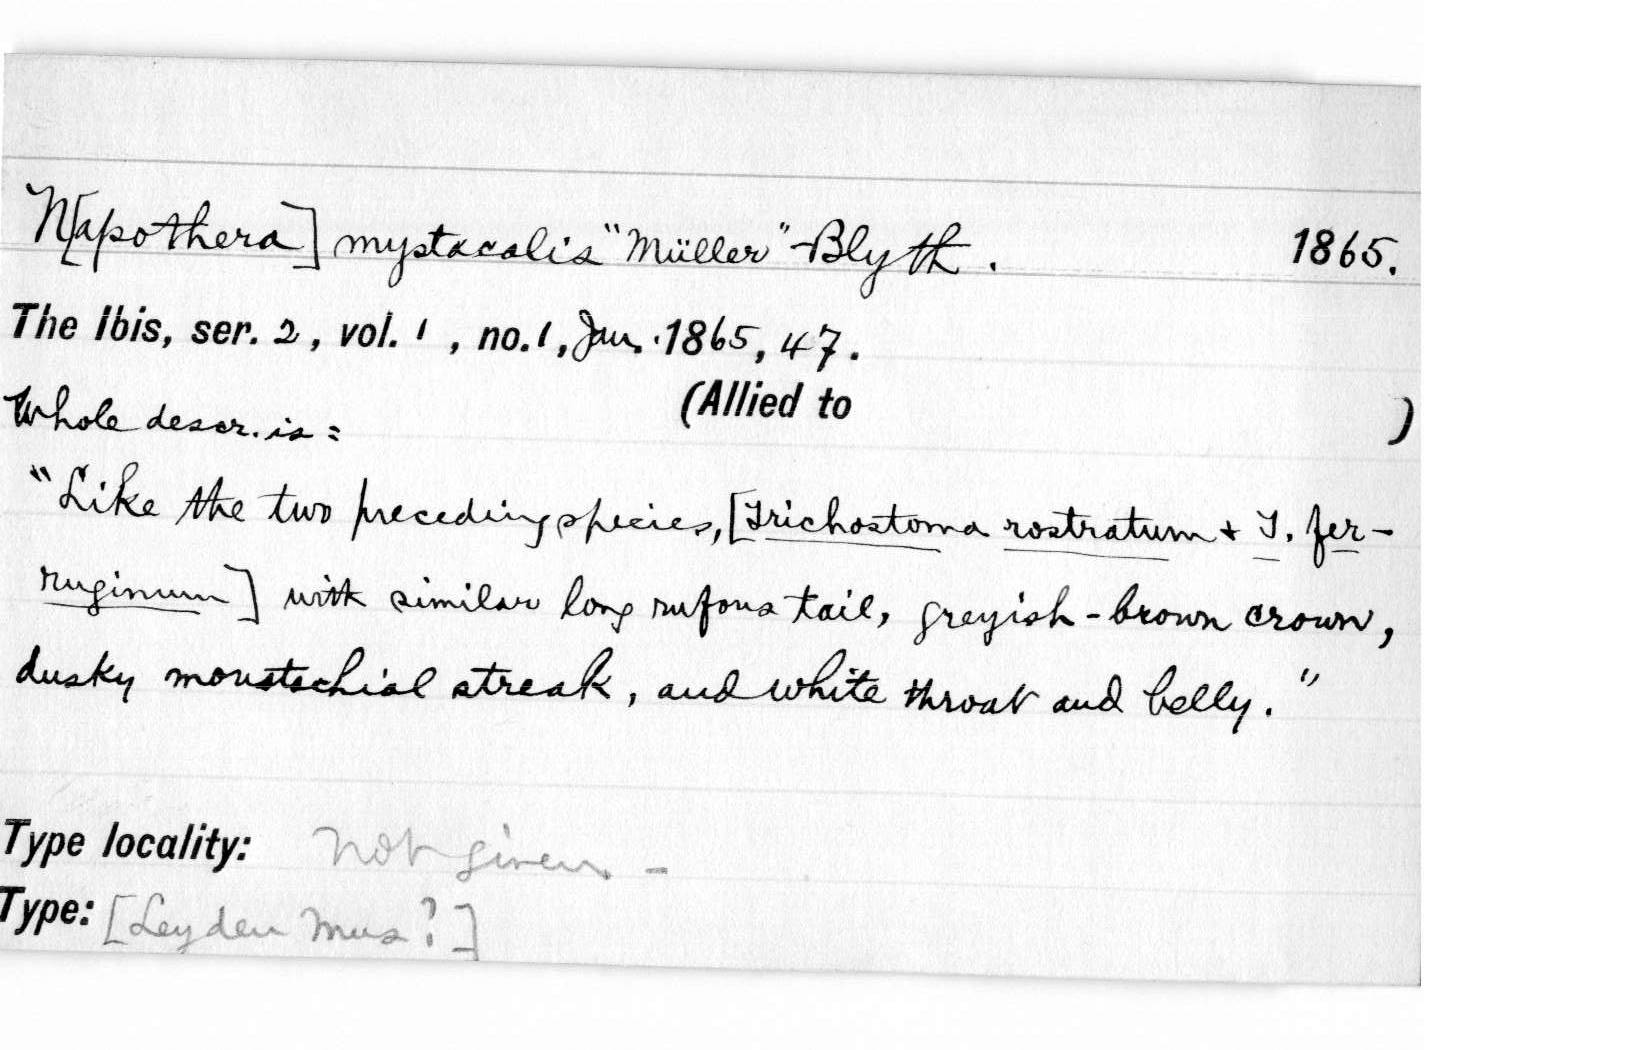 N[apothera] mystacalis "Müller" Blyth. 1865.
The Ibis, ser. 2, vol. 1, no. 1, Jan. 1865, 47.
(Allied to )
Whole descr. is =
"Like the two preceding species, [Trichostoma rostratum + T. fer-
ruginum] with similar long rufous tail, greyish-brown crown,
dusky moustachial streak, and white throat and belly."
Type locality: not given -
Type: [Leyden Mus?]